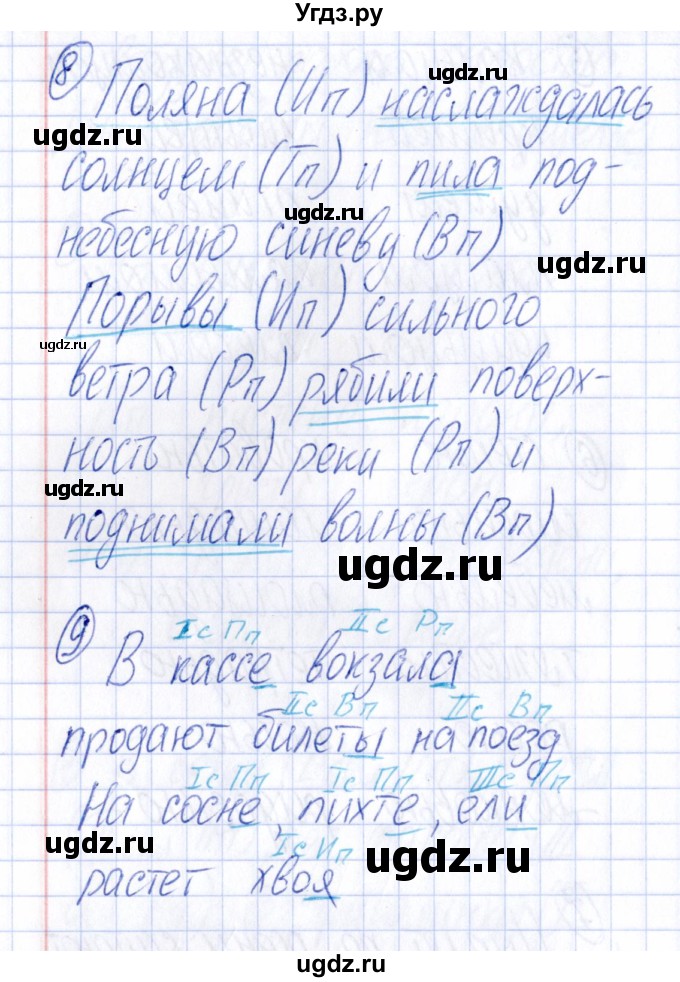 Угдз.ру
8 Поляна (Ип) наслаждалась
ugdz.ru
ugdz.ru
солнцем (Тп) и пила под-
ugdz.ru
небесную синеву (Вп)
ugdz.ru
Порывы (Ип) сильного
ugdz.ru
ветра (Рп) рябили поверх-
ность (Вп) реки (Рп) и
ugdz.ru
поднимали волны (Вп)
ugdz.ru
Iс Пп IIс Рп
9 В кассе вокзала
IIс Вп IIс Вп
продают билеты на поезд
Iс Пп Iс Пп IIIс Пп
На сосне, пихте, ели
ugdz.ru
Iс Ип
растет хвоя
ugdz.ru
ugdz.ru